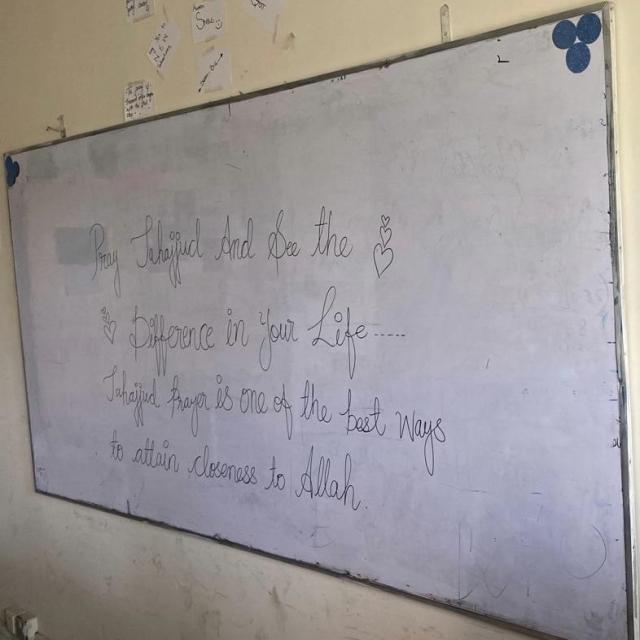 Pray Tahajjud And See the
Difference in Your Life-----
Tahajjud Prayer is one of the best ways
to attain closeness to Allah.